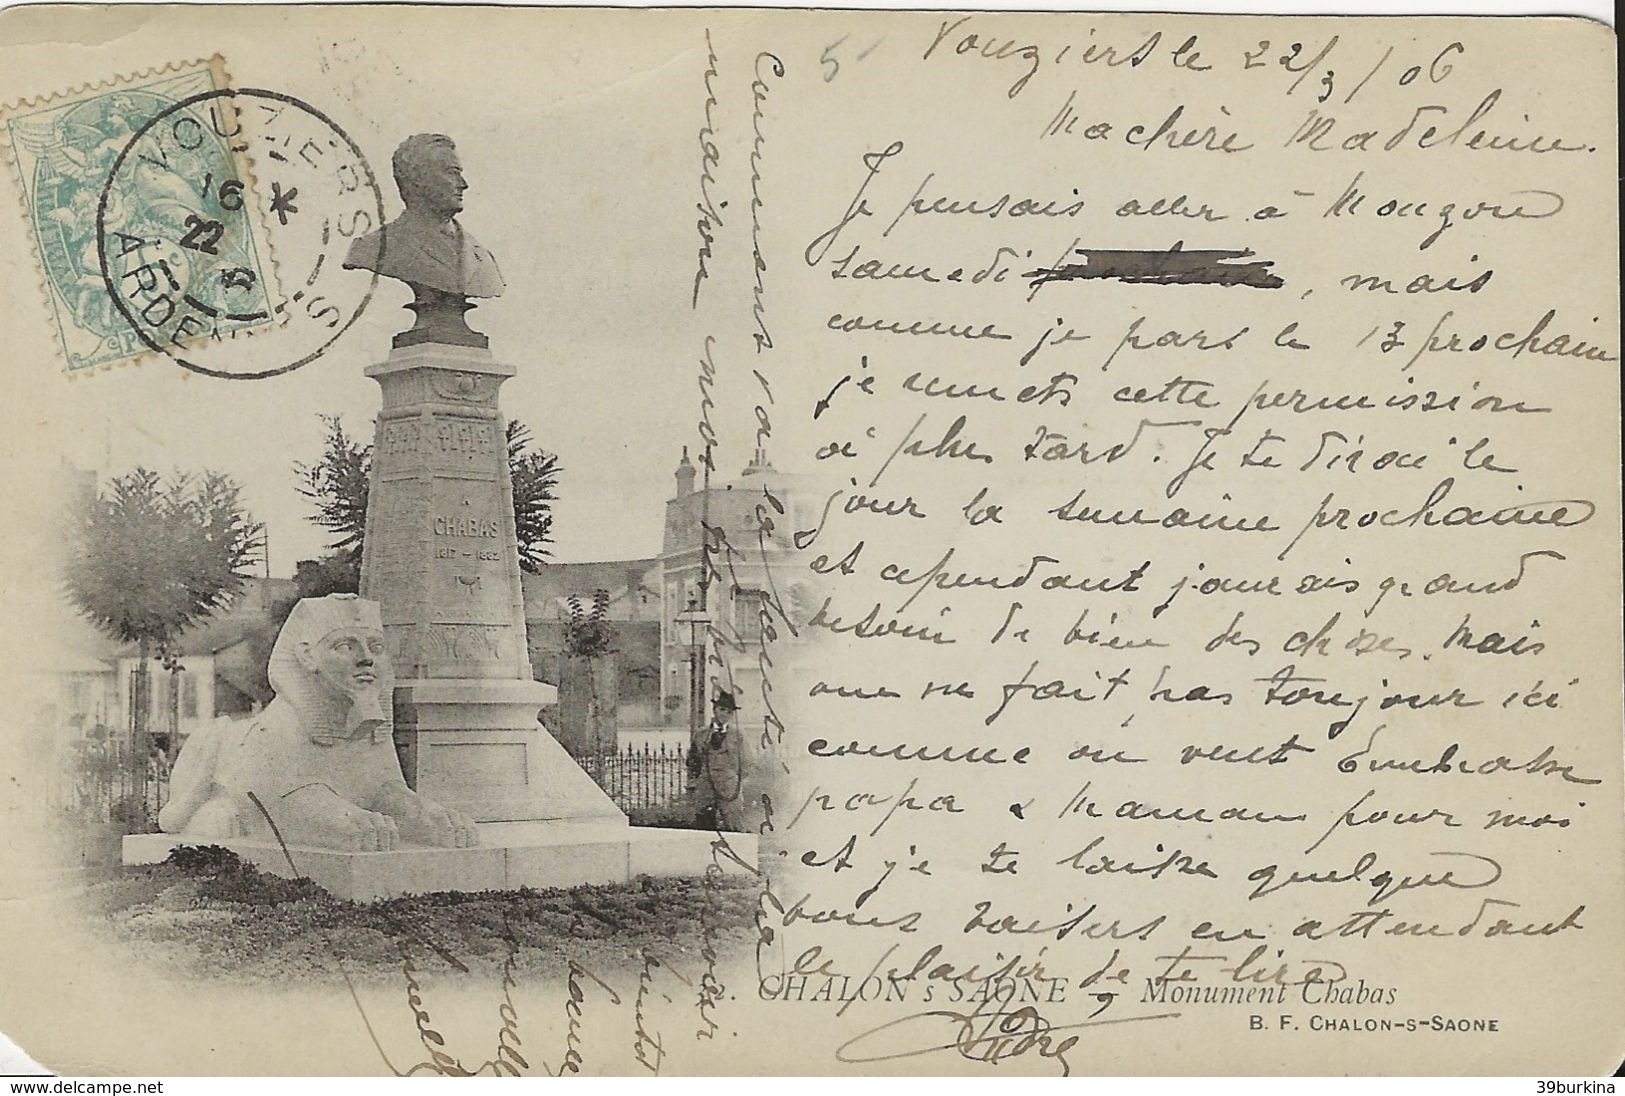 5
Vouziers le 22/3/06
Ma chère Madeleine.
Je pensais aller à Mougon
samedi , mais
comme je pars le 13 prochain
je remets cette permission
à plus tard. Je te dirai le
jour la semaine prochaine
et cependant j'aurais grand
besoin de bien des choses. Mais
on ne fait pas toujour ici
comme on veut Embrasse
papa & Maman pour moi
et je te laisse quelque
bons baisers en attendant
le plaisir de te lire
André
Comment va la santé à la
maison
te voir
bientôt
bonne
nouvelle
VOUZIERS
16
22
ARDENNES
POSTES
A
CHABAS
1817 - 1882
CHALON s SAÔNE - Monument Chabas
B. F. CHALON-S-SAONE
www.delcampe.net
39burkina